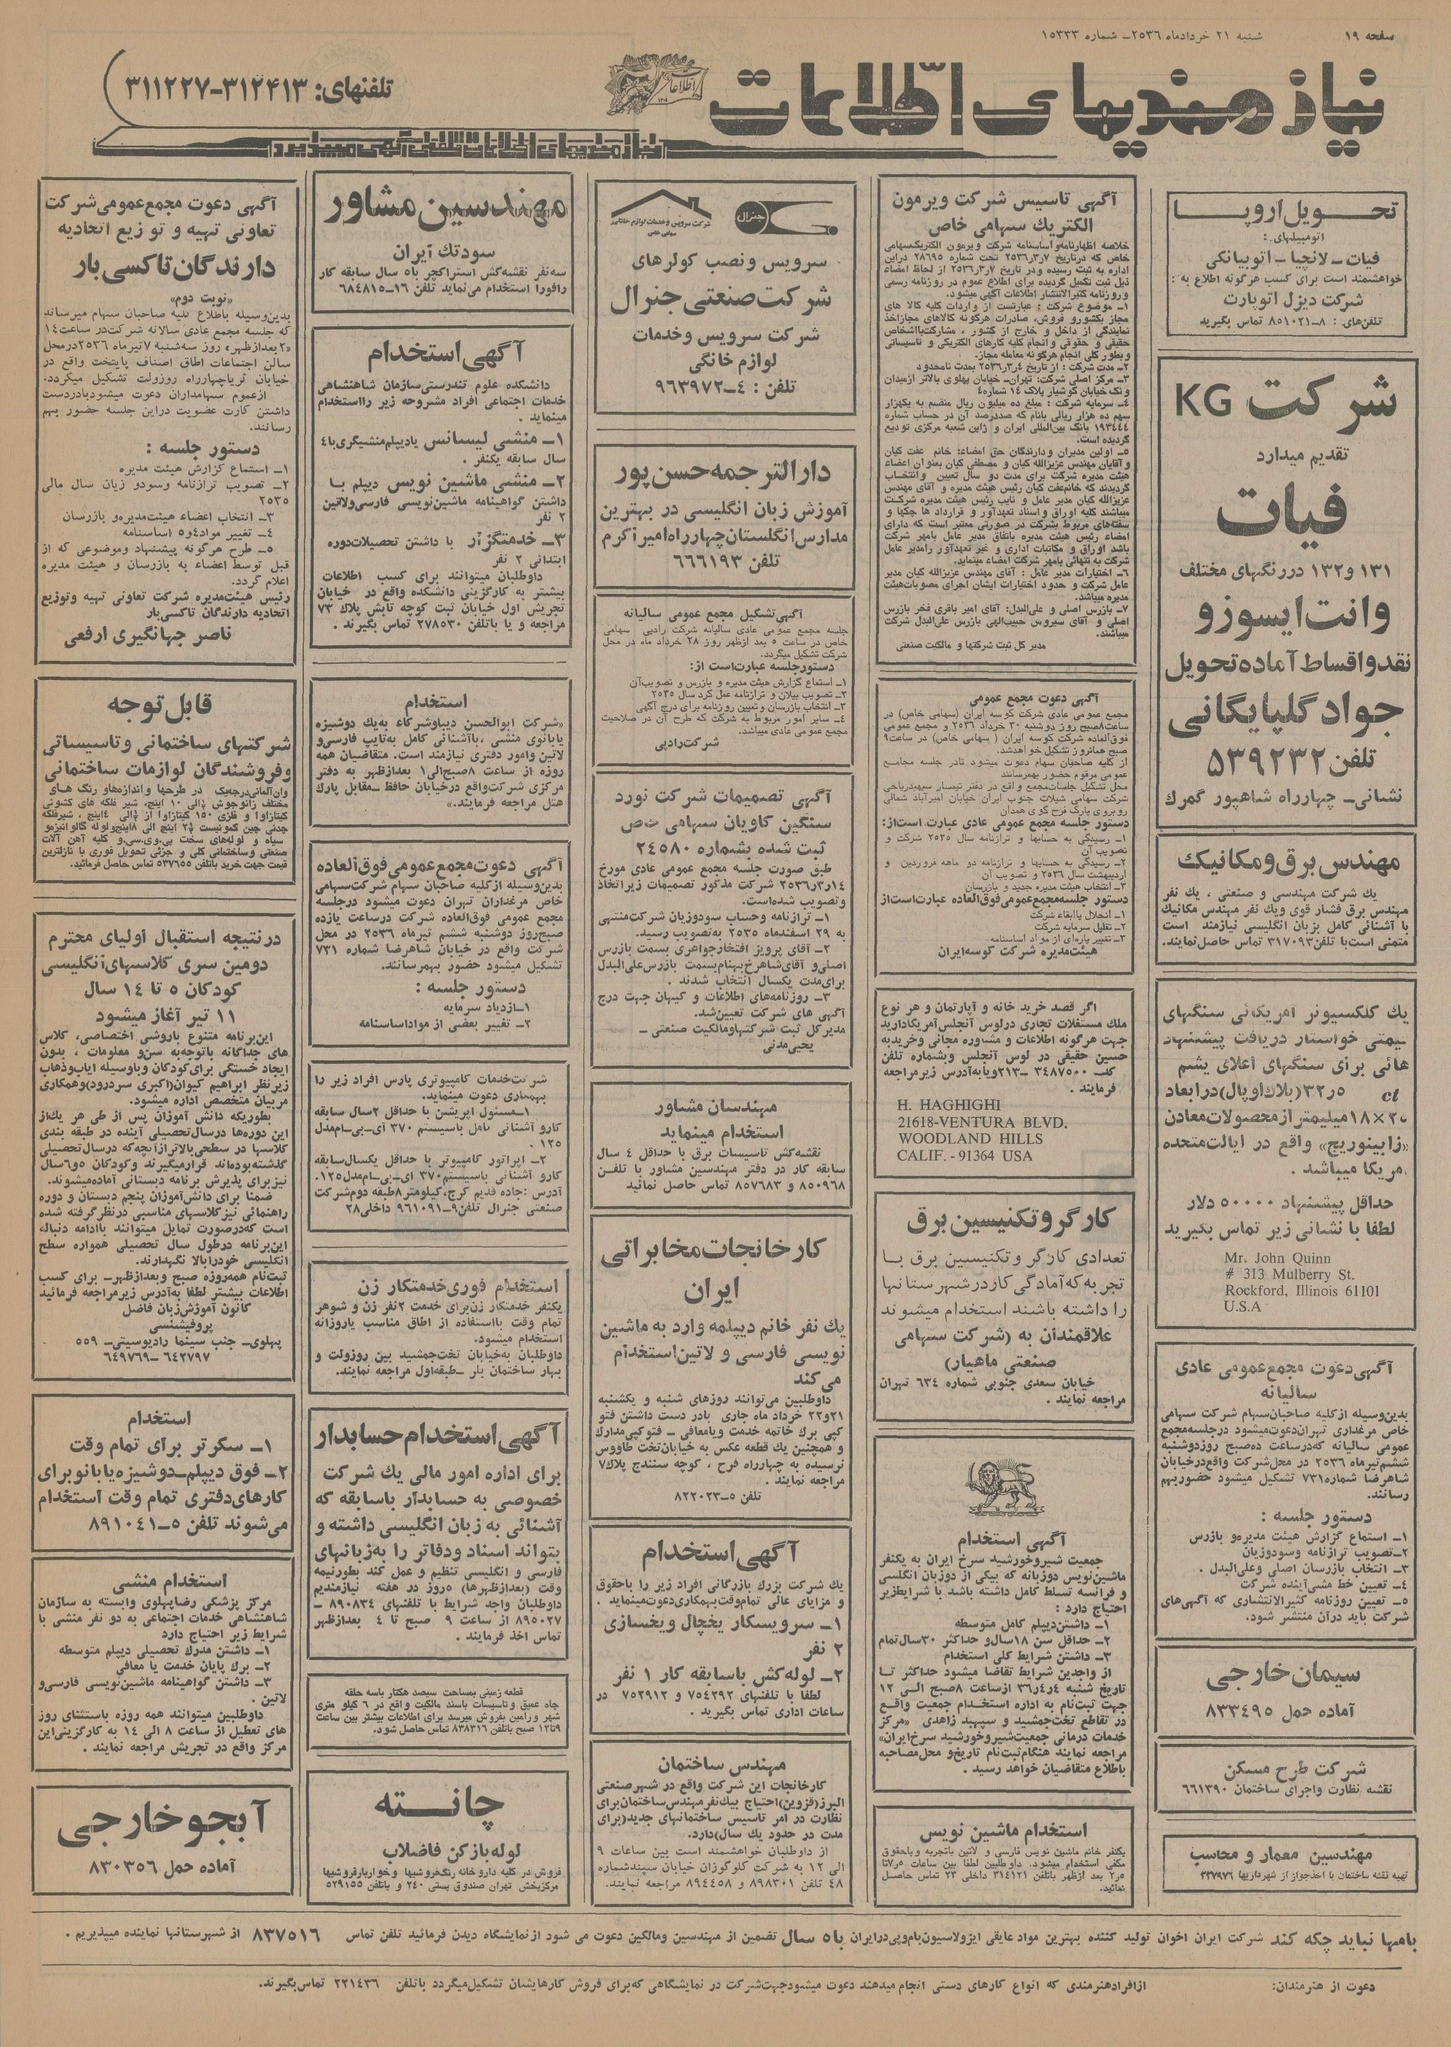 صفحه ۱۹
شنبه ۲۱ خردادماه ۲۵۳۶ـ شماره ۱۵۳۳۳
نیازمندیهای اطلاعات
تلفنهای: ۳۱۲۴۱۳-۳۱۱۲۲۷
نیازمندیهای اطلاعات تلفنی آگهی میپذیرد
تحویل اروپا
اتومبیلهای:
فیات ـ لانچیا ـ اتوبیانکی
خواهشمند است برای کسب هرگونه اطلاع به:
شرکت دیزل اتوپارت
تلفن‌های: ۸ـ۸۵۱۰۲۱ تماس بگیرید
شرکت KG
تقدیم میدارد
فیات
۱۳۱ و ۱۳۲ در رنگهای مختلف
وانت ایسوزو
نقد و اقساط آماده تحویل
جواد گلپایگانی
تلفن ۵۳۹۲۳۲
نشانی ـ چهارراه شاهپور گمرک
مهندس برق و مکانیک
یک شرکت مهندسی و صنعتی، یک نفر
مهندس برق فشار قوی و یک نفر مهندس مکانیک
با آشنائی کامل بزبان انگلیسی نیازمند است
متمنی است با تلفن ۳۱۷۰۹۳ تماس حاصل نمایند.
یک کلکسیونر آمریکائی سنگهای
قیمتی خواستار دریافت پیشنهاد
هائی برای سنگهای اعلای یشم
ct ۳۲ر۵ (بلاک اوپال) در ابعاد
۲۰×۱۸ میلیمتر از محصولات معادن
واقع در ایالت متحده
آمریکا میباشد.
حداقل پیشنهاد ۵۰۰۰۰ دلار
لطفا با نشانی زیر تماس بگیرید
Mr. John Quinn
# 313 Mulberry St.
Rockford, Illinois 61101
U.S.A
آگهی دعوت مجمع عمومی عادی
سالیانه
بدین‌وسیله از کلیه صاحبان سهام شرکت سهامی
خاص مرغداری تهران دعوت میشود در جلسه مجمع
عمومی سالیانه که در ساعت ده صبح روز دوشنبه
ششم تیرماه ۲۵۳۶ در محل شرکت واقع در خیابان
شاهرضا شماره ۷۳۱ تشکیل میشود حضور بهم
رسانند.
دستور جلسه:
۱ـ استماع گزارش هیئت مدیره و بازرس
۲ـ تصویب ترازنامه و سود و زیان
۳ـ انتخاب بازرسان اصلی و علی‌البدل.
۴ـ تعیین خط مشی آینده شرکت
۵ـ تعیین روزنامه کثیرالانتشاری که آگهی‌های
شرکت باید در آن منتشر شود.
سیمان خارجی
آماده حمل ۸۳۳۴۹۵
شرکت طرح مسکن
نقشه نظارت و اجرای ساختمان ۶۶۱۳۹۰
مهندسین معمار و محاسب
تهیه نقشه ساختمان با اخذ جواز از شهرداریها
آگهی تاسیس شرکت ویرمون
الکتریک سهامی خاص
خلاصه اظهارنامه و اساسنامه شرکت ویرمون الکتریک سهامی
خاص که در تاریخ ۷ر۳ر۲۵۳۶ تحت شماره ۲۸۶۹۵ در این
اداره به ثبت رسیده و در تاریخ ۷ر۳ر۲۵۳۶ از لحاظ امضاء
ذیل ثبت تکمیل گردیده برای اطلاع عموم در روزنامه رسمی
و روزنامه کثیرالانتشار اطلاعات آگهی میشود.
۱ـ موضوع شرکت: عبارتست از واردات کلیه کالا های
مجاز بکشور و فروش، صادرات هرگونه کالاهای مجاز اخذ
نمایندگی از داخل و خارج از کشور، مشارکت با اشخاص
حقیقی و حقوقی و انجام کلیه کارهای الکتریکی و تاسیساتی
و بطور کلی انجام هرگونه معامله مجاز.
۲ـ مدت شرکت: از تاریخ ۴ر۳ر۲۵۳۶ بمدت نامحدود
۳ـ مرکز اصلی شرکت: تهران ـ خیابان پهلوی بالاتر از میدان
ونک خیابان کوشیار پلاک ۱۴ شماره ۴
۴ـ سرمایه شرکت: مبلغ ده میلیون ریال منقسم به یکهزار
سهم ده هزار ریالی بانام که صددرصد آن در حساب شماره
۱۹۳۴۴۴ بانک بین‌المللی ایران و ژاپن شعبه مرکزی تودیع
گردیده است.
۵ـ اولین مدیران و دارندگان حق امضاء: خانم عفت کیان
و آقایان مهندس عزیزالله کیان و مصطفی کیان بعنوان اعضاء
هیئت مدیره شرکت برای مدت دو سال تعیین و انتخاب
گردیدند که خانم عفت کیان رئیس هیئت مدیره و آقای مهندس
عزیزالله کیان مدیر عامل و نایب رئیس هیئت مدیره شرکت
میباشند کلیه اوراق و اسناد تعهدآور و قرارداد ها چکها و
سفته‌های مربوط بشرکت در صورتی معتبر است که دارای
امضاء رئیس هیئت مدیره باتفاق مدیر عامل بامهر شرکت
باشد اوراق و مکاتبات اداری و غیر تعهدآور را مدیر عامل
شرکت به تنهائی بامهر شرکت امضاء مینماید.
۶ـ اختیارات مدیر عامل: آقای مهندس عزیزالله کیان مدیر
عامل شرکت و حدود اختیارات ایشان اجرای مصوبات هیئت
مدیره میباشد.
۷ـ بازرس اصلی و علی‌البدل: آقای امیر باقری فخر بازرس
اصلی و آقای سیروس حبیب‌الهی بازرس علی‌البدل شرکت
میباشند.
مدیر کل ثبت شرکتها و مالکیت صنعتی
آگهی دعوت مجمع عمومی
مجمع عمومی عادی شرکت کوسه ایران (سهامی خاص) در
ساعت ۸ صبح روز دوشنبه ۳۰ خرداد ۲۵۳۶ و مجمع عمومی
فوق‌العاده شرکت کوسه ایران (سهامی خاص) در ساعت ۹
صبح همانروز تشکیل خواهد شد.
از کلیه صاحبان سهام دعوت میشود تا در جلسه مجامع
عمومی مرقوم حضور بهمرسانند
محل تشکیل جلسات مجمع و واقع در دفتر تیمسار سپهبد ریاحی
شرکت سهامی شیلات جنوب ایران خیابان امیرآباد شمالی
روبروی پارک فرح کوی همدان
دستور جلسه مجمع عمومی عادی عبارت است از:
۱ـ رسیدگی به حسابها و ترازنامه سال ۲۵۳۵ شرکت و
تصویب آن
۲ـ رسیدگی به حسابها و ترازنامه دو ماهه فروردین و
اردیبهشت سال ۲۵۳۶ و تصویب آن
۳ـ انتخاب هیئت مدیره جدید و بازرسان
دستور جلسه مجمع عمومی فوق‌العاده عبارت است از
۱ـ انحلال یا ابقاء شرکت
۲ـ تقلیل سرمایه شرکت
۳ـ تغییر پاره‌ای از مواد اساسنامه
هیئت مدیره شرکت کوسه ایران
اگر قصد خرید خانه و آپارتمان و هر نوع
ملک مستغلات تجاری در لوس آنجلس آمریکا دارید
جهت هرگونه اطلاعات و مشاوره مجانی و خرید به
حسین حقیقی در لوس آنجلس و بشماره تلفن
کد ۳۴۸۷۵۰۰ ـ۲۱۳ و یا به آدرس زیر مراجعه
فرمایند.
H. HAGHIGHI
21618-VENTURA BLVD.
WOODLAND HILLS
CALIF. - 91364 USA
کارگر و تکنیسین برق
تعدادی کارگر و تکنیسین برق با
تجربه که آمادگی کار در شهرستانها
را داشته باشند استخدام میشوند
علاقمندان به (شرکت سهامی
صنعتی ماهیار)
خیابان سعدی جنوبی شماره ۶۳۴ تهران
مراجعه نمایند.
آگهی استخدام
جمعیت شیر و خورشید سرخ ایران به یکنفر
ماشین‌نویس دوزبانه که بیکی از دوزبان انگلیسی
و فرانسه تسلط کامل داشته باشد با شرایط زیر
احتیاج دارد:
۱ـ داشتن دیپلم کامل متوسطه
۲ـ حداقل سن ۱۸ سال و حداکثر ۳۰ سال تمام
۳ـ داشتن شرایط کلی استخدام
از واجدین شرایط تقاضا میشود حداکثر تا
تاریخ شنبه ۴ر۴ر۳۶ از ساعت ۸ صبح الی ۱۲
جهت ثبت‌نام به اداره استخدام جمعیت واقع
در تقاطع تخت‌جمشید و سپهبد زاهدی «مرکز
خدمات درمانی جمعیت شیر و خورشید سرخ ایران»
مراجعه نمایند هنگام ثبت نام تاریخ و محل مصاحبه
باطلاع متقاضیان خواهد رسید.
استخدام ماشین نویس
یکنفر خانم ماشین نویس فارسی و لاتین باتجربه و باحقوق
مکفی استخدام میشود. داوطلبین لطفا بین ساعات
بعد ازظهر باتلفن ۳۱۴۱۲۱ داخلی ۲۳ تماس حاصل
نمائید.
جنرال
شرکت سرویس و خدمات لوازم خانگی
سهامی خاص
سرویس و نصب کولرهای
شرکت صنعتی جنرال
شرکت سرویس و خدمات
لوازم خانگی
تلفن: ۴ـ۹۶۳۹۷۲
دارالترجمه حسن پور
آموزش زبان انگلیسی در بهترین
مدارس انگلستان چهارراه امیراکرم
تلفن ۶۶۶۱۹۳
آگهی تشکیل مجمع عمومی سالیانه
جلسه مجمع عمومی عادی سالیانه شرکت رادیی سهامی
خاص در ساعت ۵ بعد ازظهر روز ۲۸ خرداد ماه در محل
شرکت تشکیل میگردد.
دستور جلسه عبارت است از:
۱ـ استماع گزارش هیئت مدیره و بازرس و تصویب آن
۲ـ تصویب بیلان و ترازنامه عمل کرد سال ۲۵۳۵
۳ـ انتخاب بازرسان و تعیین روزنامه برای درج آگهی
۴ـ سایر امور مربوط به شرکت که طرح آن در صلاحیت
مجمع عمومی عادی میباشد.
شرکت رادیی
آگهی تصمیمات شرکت نورد
سنگین کاویان سهامی خاص
ثبت شده بشماره ۲۴۵۸۰
طبق صورت جلسه مجمع عمومی عادی مورخ
۱۴ر۳ر۲۵۳۶ شرکت مذکور تصمیمات زیر اتخاذ
و تصویب شده است.
۱ـ ترازنامه و حساب سود و زیان شرکت منتهی
به ۲۹ اسفندماه ۲۵۳۵ به تصویب رسید.
۲ـ آقای پرویز افتخار جواهری بسمت بازرس
اصلی و آقای شاهرخ بهنام بسمت بازرس علی‌البدل
برای مدت یکسال انتخاب شدند.
۳ـ روزنامه‌های اطلاعات و کیهان جهت درج
آگهی های شرکت تعیین شد.
مدیر کل ثبت شرکتها و مالکیت صنعتی ـ
یحیی مدنی
مهندسان مشاور
استخدام مینماید
نقشه‌کش تاسیسات برق با حداقل ۴ سال
سابقه کار در دفتر مهندسین مشاور با تلفن
۸۵۰۹۶۸ و ۸۵۷۶۸۳ تماس حاصل نمائید
کارخانجات مخابراتی
ایران
یک نفر خانم دیپلمه وارد به ماشین
نویسی فارسی و لاتین استخدام
می کند
داوطلبین می‌توانند روزهای شنبه و یکشنبه
۲۱ و ۲۲ خرداد ماه جاری بادر دست داشتن فتو
کپی برگ خاتمه خدمت و یا معافی ـ فتوکپی مدارک
و همچنین یک قطعه عکس به خیابان تخت طاووس
نرسیده به چهارراه فرح، کوچه سنندج پلاک ۷
مراجعه نمایند.
تلفن ۵ـ۸۲۲۰۲۳
آگهی استخدام
یک شرکت بزرگ بازرگانی افراد زیر را باحقوق
و مزایای عالی تمام وقت بهمکاری دعوت مینماید.
۱ـ سرویسکار یخچال و یخسازی
۲ نفر
۲ـ لوله کش باسابقه کار ۱ نفر
لطفا با تلفنهای ۷۵۴۲۹۲ و ۷۵۲۹۱۲ در
ساعات اداری تماس بگیرید.
مهندس ساختمان
کارخانجات این شرکت واقع در شهر صنعتی
البرز (قزوین) احتیاج بیک نفر مهندس ساختمان برای
نظارت در امر تاسیس ساختمانهای جدید (برای
مدت در حدود یک سال) دارد.
از داوطلبان خواهشمند است بین ساعات ۹
الی ۱۲ به شرکت کلوگوزان خیابان سمیه شماره
۴۸ تلفن ۸۹۸۳۰۱ و ۸۹۴۴۵۸ مراجعه نمایند.
مهندسین مشاور
سودتک ایران
سه نفر نقشه کش استراکچر با ۵ سال سابقه کار
را فورا استخدام می‌نماید تلفن ۱۶ـ۶۸۴۸۱۵
آگهی استخدام
دانشکده علوم تندرستی سازمان شاهنشاهی
خدمات اجتماعی افراد مشروحه زیر را استخدام
مینماید.
۱ـ منشی لیسانس یا دیپلم منشیگری با ۴
سال سابقه یکنفر.
۲ـ منشی ماشین نویس دیپلم با
داشتن گواهینامه ماشین‌نویسی فارسی و لاتین
۲ نفر
۳ـ خدمتگزار با داشتن تحصیلات دوره
ابتدائی ۲ نفر
داوطلبان میتوانند برای کسب اطلاعات
بیشتر به کارگزینی دانشکده واقع در خیابان
تجریش اول خیابان ثبت کوچه تابش پلاک ۷۳
مراجعه و یا باتلفن ۲۷۸۵۳۰ تماس بگیرند.
استخدام
«شرکت ابوالحسن دیبا و شرکاء به یک دوشیزه
یا بانوی منشی، با آشنائی کامل به تایپ فارسی و
لاتین و امور دفتری نیازمند است. متقاضیان همه
روزه از ساعت ۸ صبح الی ۱ بعدازظهر به دفتر
مرکزی شرکت واقع در خیابان حافظ ـ مقابل پارک
هتل مراجعه فرمایند.»
آگهی دعوت مجمع عمومی فوق العاده
بدین‌وسیله از کلیه صاحبان سهام شرکت سهامی
خاص مرغداران تهران دعوت میشود در جلسه
مجمع عمومی فوق‌العاده شرکت در ساعت یازده
صبح روز دوشنبه ششم تیرماه ۲۵۳۶ در محل
شرکت واقع در خیابان شاهرضا شماره ۷۳۱
تشکیل میشود حضور بهمرسانند.
دستور جلسه:
۱ـ ازدیاد سرمایه
۲ـ تغییر بعضی از مواد اساسنامه
شرکت خدمات کامپیوتری پارس افراد زیر را
بهمکاری دعوت مینماید.
۱ـ مسئول اپریشن با حداقل ۲ سال سابقه
کار و آشنائی کامل با سیستم ۳۷۰ آی‌ـ‌بی‌ـ‌ام مدل
۱۲۵.
۲ـ اپراتور کامپیوتر با حداقل یکسال سابقه
کار و آشنائی باسیستم ۳۷۰ آی‌ـ‌بی‌ـ‌ام مدل ۱۲۵.
آدرس: جاده قدیم کرج، کیلومتر ۸ طبقه دوم شرکت
صنعتی جنرال تلفن ۹ـ۹۶۱۰۹۱ داخلی ۲۸
استخدام فوری خدمتکار زن
یکنفر خدمتکار زن برای خدمت ۲ نفر زن و شوهر
تمام وقت با استفاده از اطاق مناسب یا روزانه
استخدام میشود.
داوطلبان به خیابان تخت‌جمشید بین روزولت و
بهار ساختمان بلر ـ طبقه اول مراجعه نمایند.
آگهی استخدام حسابدار
برای اداره امور مالی یک شرکت
خصوصی به حسابدار باسابقه که
آشنائی به زبان انگلیسی داشته و
بتواند اسناد و دفاتر را به زبانهای
فارسی و انگلیسی تنظیم و عمل کند بطور نیمه
وقت (بعدازظهرها) ۵ روز در هفته نیازمندیم
داوطلبان واجد شرایط با تلفنهای ۸۹۰۸۳۴ ـ
۸۹۵۰۲۷ از ساعت ۹ صبح تا ۴ بعدازظهر
تماس اخذ فرمایند.
قطعه زمینی بمساحت سیصد هکتار باسه حلقه
چاه عمیق و تاسیسات باسند مالکیت واقع در ۶ کیلو متری
شهر ورامین بفروش میرسد برای اطلاعات بیشتر بین ساعت
۹ تا ۱۲ صبح باتلفن ۸۳۸۳۱۶ تماس حاصل شود.
چانسته
لوله بازکن فاضلاب
فروش در کلیه داروخانه رنگ فروشیها و خواربار فروشیها
مرکز پخش تهران صندوق پستی ۲۴۰ و باتلفن ۵۲۹۱۵۵
آگهی دعوت مجمع عمومی شرکت
تعاونی تهیه و توزیع اتحادیه
دارندگان تاکسی بار
«نوبت دوم»
بدین‌وسیله باطلاع کلیه صاحبان سهام میرساند
که جلسه مجمع عادی سالانه شرکت در ساعت ۱۴
«۲ بعدازظهر» روز سه‌شنبه ۷ تیرماه ۲۵۳۶ در محل
سالن اجتماعات اطاق اصناف پایتخت واقع در
خیابان ثریا چهارراه روزولت تشکیل میگردد.
از عموم سهامداران دعوت میشود با در دست
داشتن کارت عضویت در این جلسه حضور بهم
رسانند.
دستور جلسه:
۱ـ استماع گزارش هیئت مدیره
۲ـ تصویب ترازنامه و سود و زیان سال مالی
۲۵۳۵
۳ـ انتخاب اعضاء هیئت مدیره و بازرسان
۴ـ تغییر مواد ۴ و ۵ اساسنامه
۵ـ طرح هرگونه پیشنهاد و موضوعی که از
قبل توسط اعضاء به بازرسان و هیئت مدیره
اعلام گردد.
رئیس هیئت مدیره شرکت تعاونی تهیه و توزیع
اتحادیه دارندگان تاکسی بار
ناصر جهانگیری ارفعی
قابل توجه
شرکتهای ساختمانی و تاسیساتی
و فروشندگان لوازمات ساختمانی
وان آلمانی در طرحها و اندازه‌ها و رنگ های
مختلف زانو جوش الی ۱۰ اینچ، شیر فلکه های کشوئی
سیاه و لوله‌های سخت پی.وی.سی. و کلیه آهن آلات
صنعتی و ساختمانی کلی و جزئی تحویل فوری با نازلترین
قیمت جهت خرید باتلفن ۵۳۷۶۵۵ تماس حاصل فرمائید.
در نتیجه استقبال اولیای محترم
دومین سری کلاسهای انگلیسی
کودکان ۵ تا ۱۴ سال
۱۱ تیر آغاز میشود
این برنامه متنوع باروشی اختصاصی، کلاس
های جداگانه باتوجه به سن و معلومات، بدون
ایجاد خستگی برای کودکان و باوسیله ایاب و ذهاب
زیر نظر ابراهیم کیوان (اکبری سردرود) و همکاری
مربیان متخصص اداره میشود.
بطوریکه دانش آموزان پس از طی هر یک از
این دوره‌ها در سال تحصیلی آینده در طبقه بندی
کلاسها در سطحی بالاتر از آنچه که در سال تحصیلی
گذشته بوده‌اند قرار میگیرند و کودکان ۵ و ۶ سال
نیز برای پذیرش برنامه دبستانی آماده میشوند.
ضمنا برای دانش‌آموزان پنجم دبستان و دوره
راهنمائی نیز کلاسهای مناسبی در نظر گرفته شده
است که در صورت تمایل میتوانند با ادامه دنباله
این برنامه در طول سال تحصیلی همواره سطح
انگلیسی خود را بالا نگهدارند.
ثبت‌نام همه روزه صبح و بعدازظهر ـ برای کسب
اطلاعات بیشتر لطفا به آدرس زیر مراجعه فرمائید
کانون آموزش زبان فاضل
پروفیشنسی
پهلوی ـ جنب سینما رادیوسیتی ـ ۵۵۹
۶۴۲۷۹۷ ـ ۶۴۹۷۶۹
استخدام
۱ـ سکرتر برای تمام وقت
۲ـ فوق دیپلم ـ دوشیزه یا بانو برای
کارهای دفتری تمام وقت استخدام
می‌شوند تلفن ۵ـ۸۹۱۰۴۱
استخدام منشی
مرکز پزشکی رضاپهلوی وابسته به سازمان
شاهنشاهی خدمات اجتماعی به دو نفر منشی با
شرایط زیر احتیاج دارد
۱ـ داشتن مدرک تحصیلی دیپلم متوسطه
۲ـ برگ پایان خدمت یا معافی
۳ـ داشتن گواهینامه ماشین‌نویسی فارسی و
لاتین.
داوطلبین میتوانند همه روزه باستثنای روز
های تعطیل از ساعت ۸ الی ۱۴ به کارگزینی این
مرکز واقع در تجریش مراجعه نمایند.
آبجو خارجی
آماده حمل ۸۳۰۳۵۶
بامها نباید چکه کند شرکت ایران اخوان تولید کننده بهترین مواد عایقی ایزولاسیون بام و پی در ایران با ۵ سال تضمین از مهندسین و مالکین دعوت می شود از نمایشگاه دیدن فرمائید تلفن تماس ۸۳۷۵۱۶ از شهرستانها نماینده میپذیریم.
دعوت از هنرمندان: از افراد هنرمندی که انواع کارهای دستی انجام میدهند دعوت میشود جهت شرکت در نمایشگاهی که برای فروش کارهایشان تشکیل میگردد باتلفن ۲۲۱۴۳۶ تماس بگیرند.